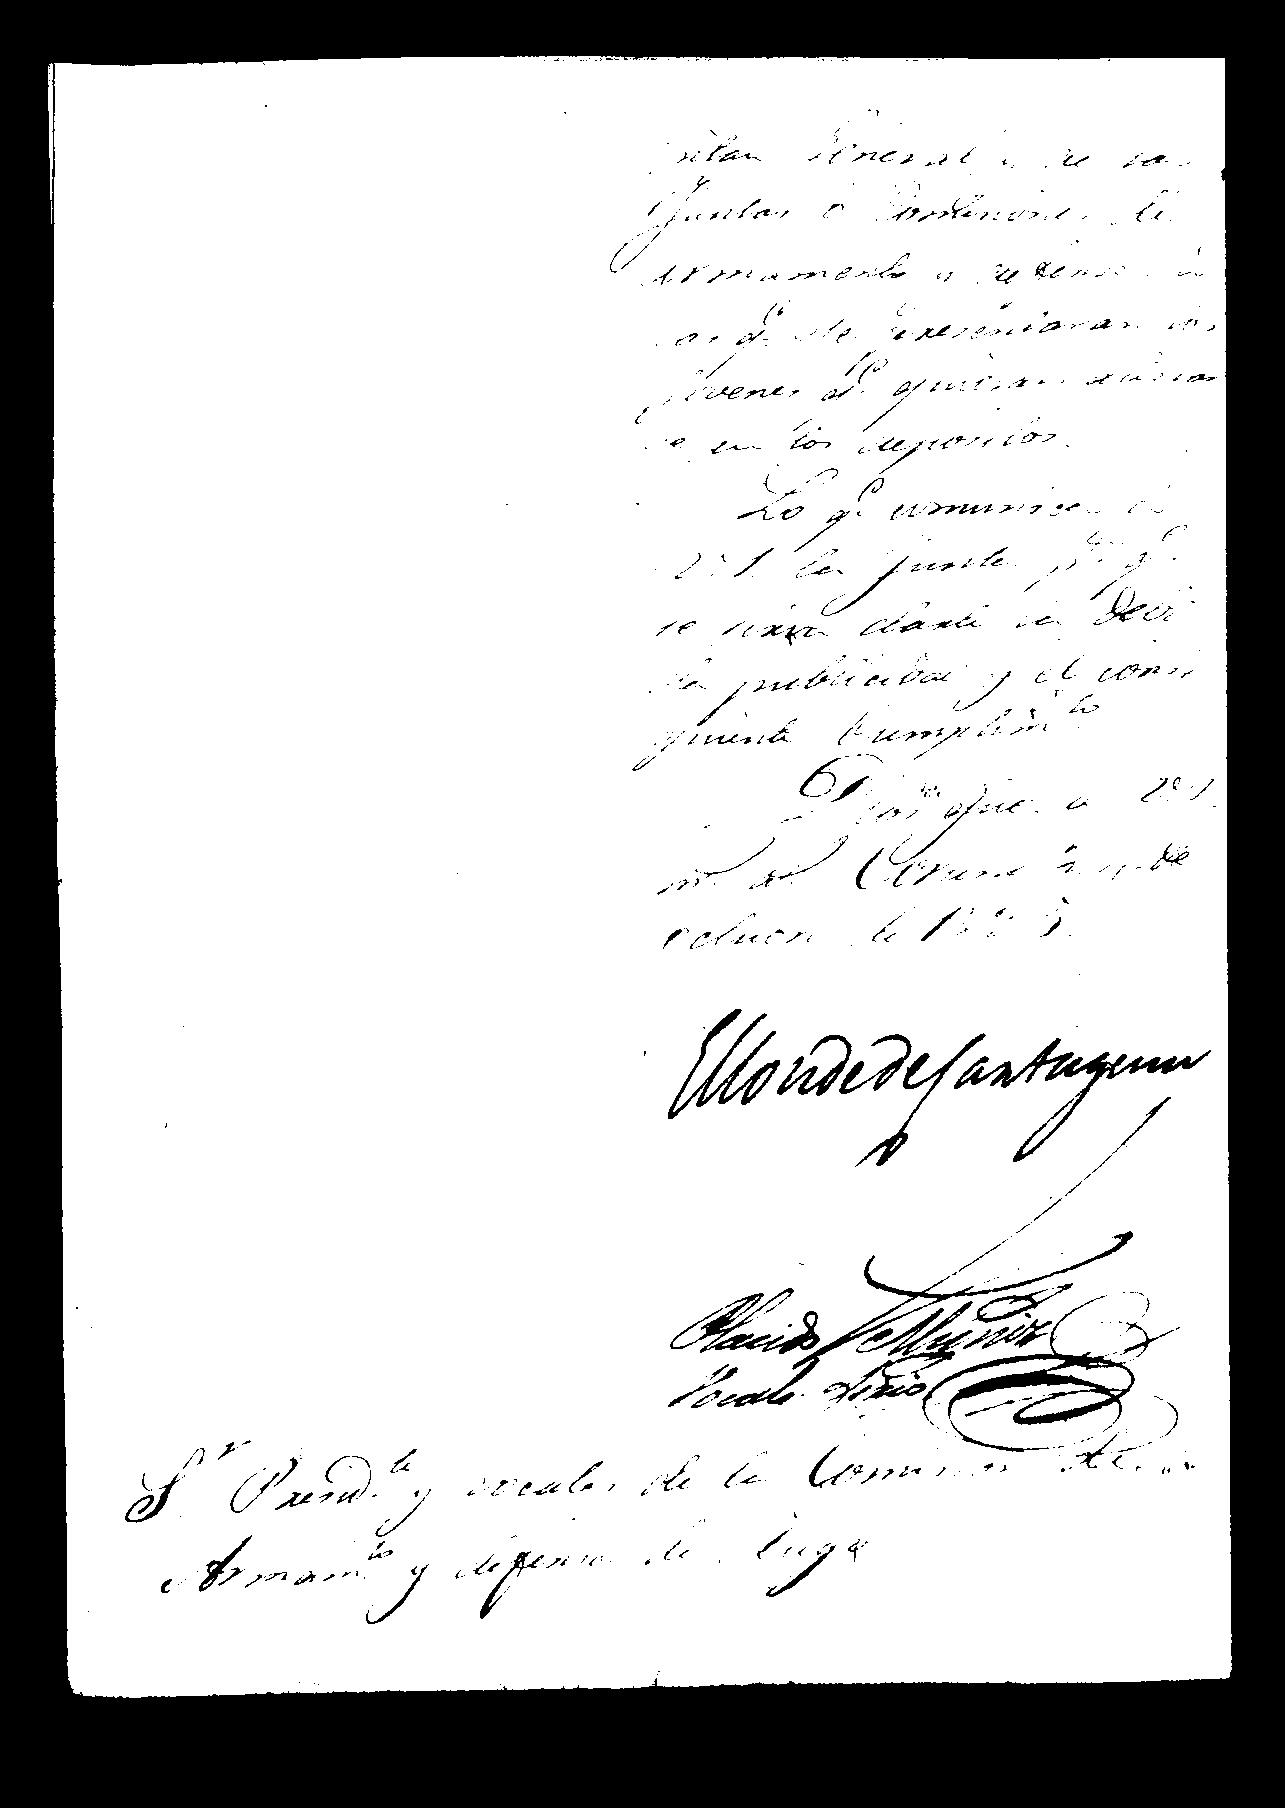 pitan General y de las
Juntas o Comisiones de
armamento y defensa a
las qe se presentaran los
jovenes qe quieran alistar
se en los depositos.
Lo qe comunica a
V.S. la Junta pa qe
se sirva darle la debi
da publicidad y el consi
guiente cumplimto
Dios gue a V.S.
ms as Coruña de
de 18
El Conde de Cartagena
Placido Muñiz
Vocal Srio
Sr Presidte y vocales de la Comision de
Armamto y defensa de Lugo